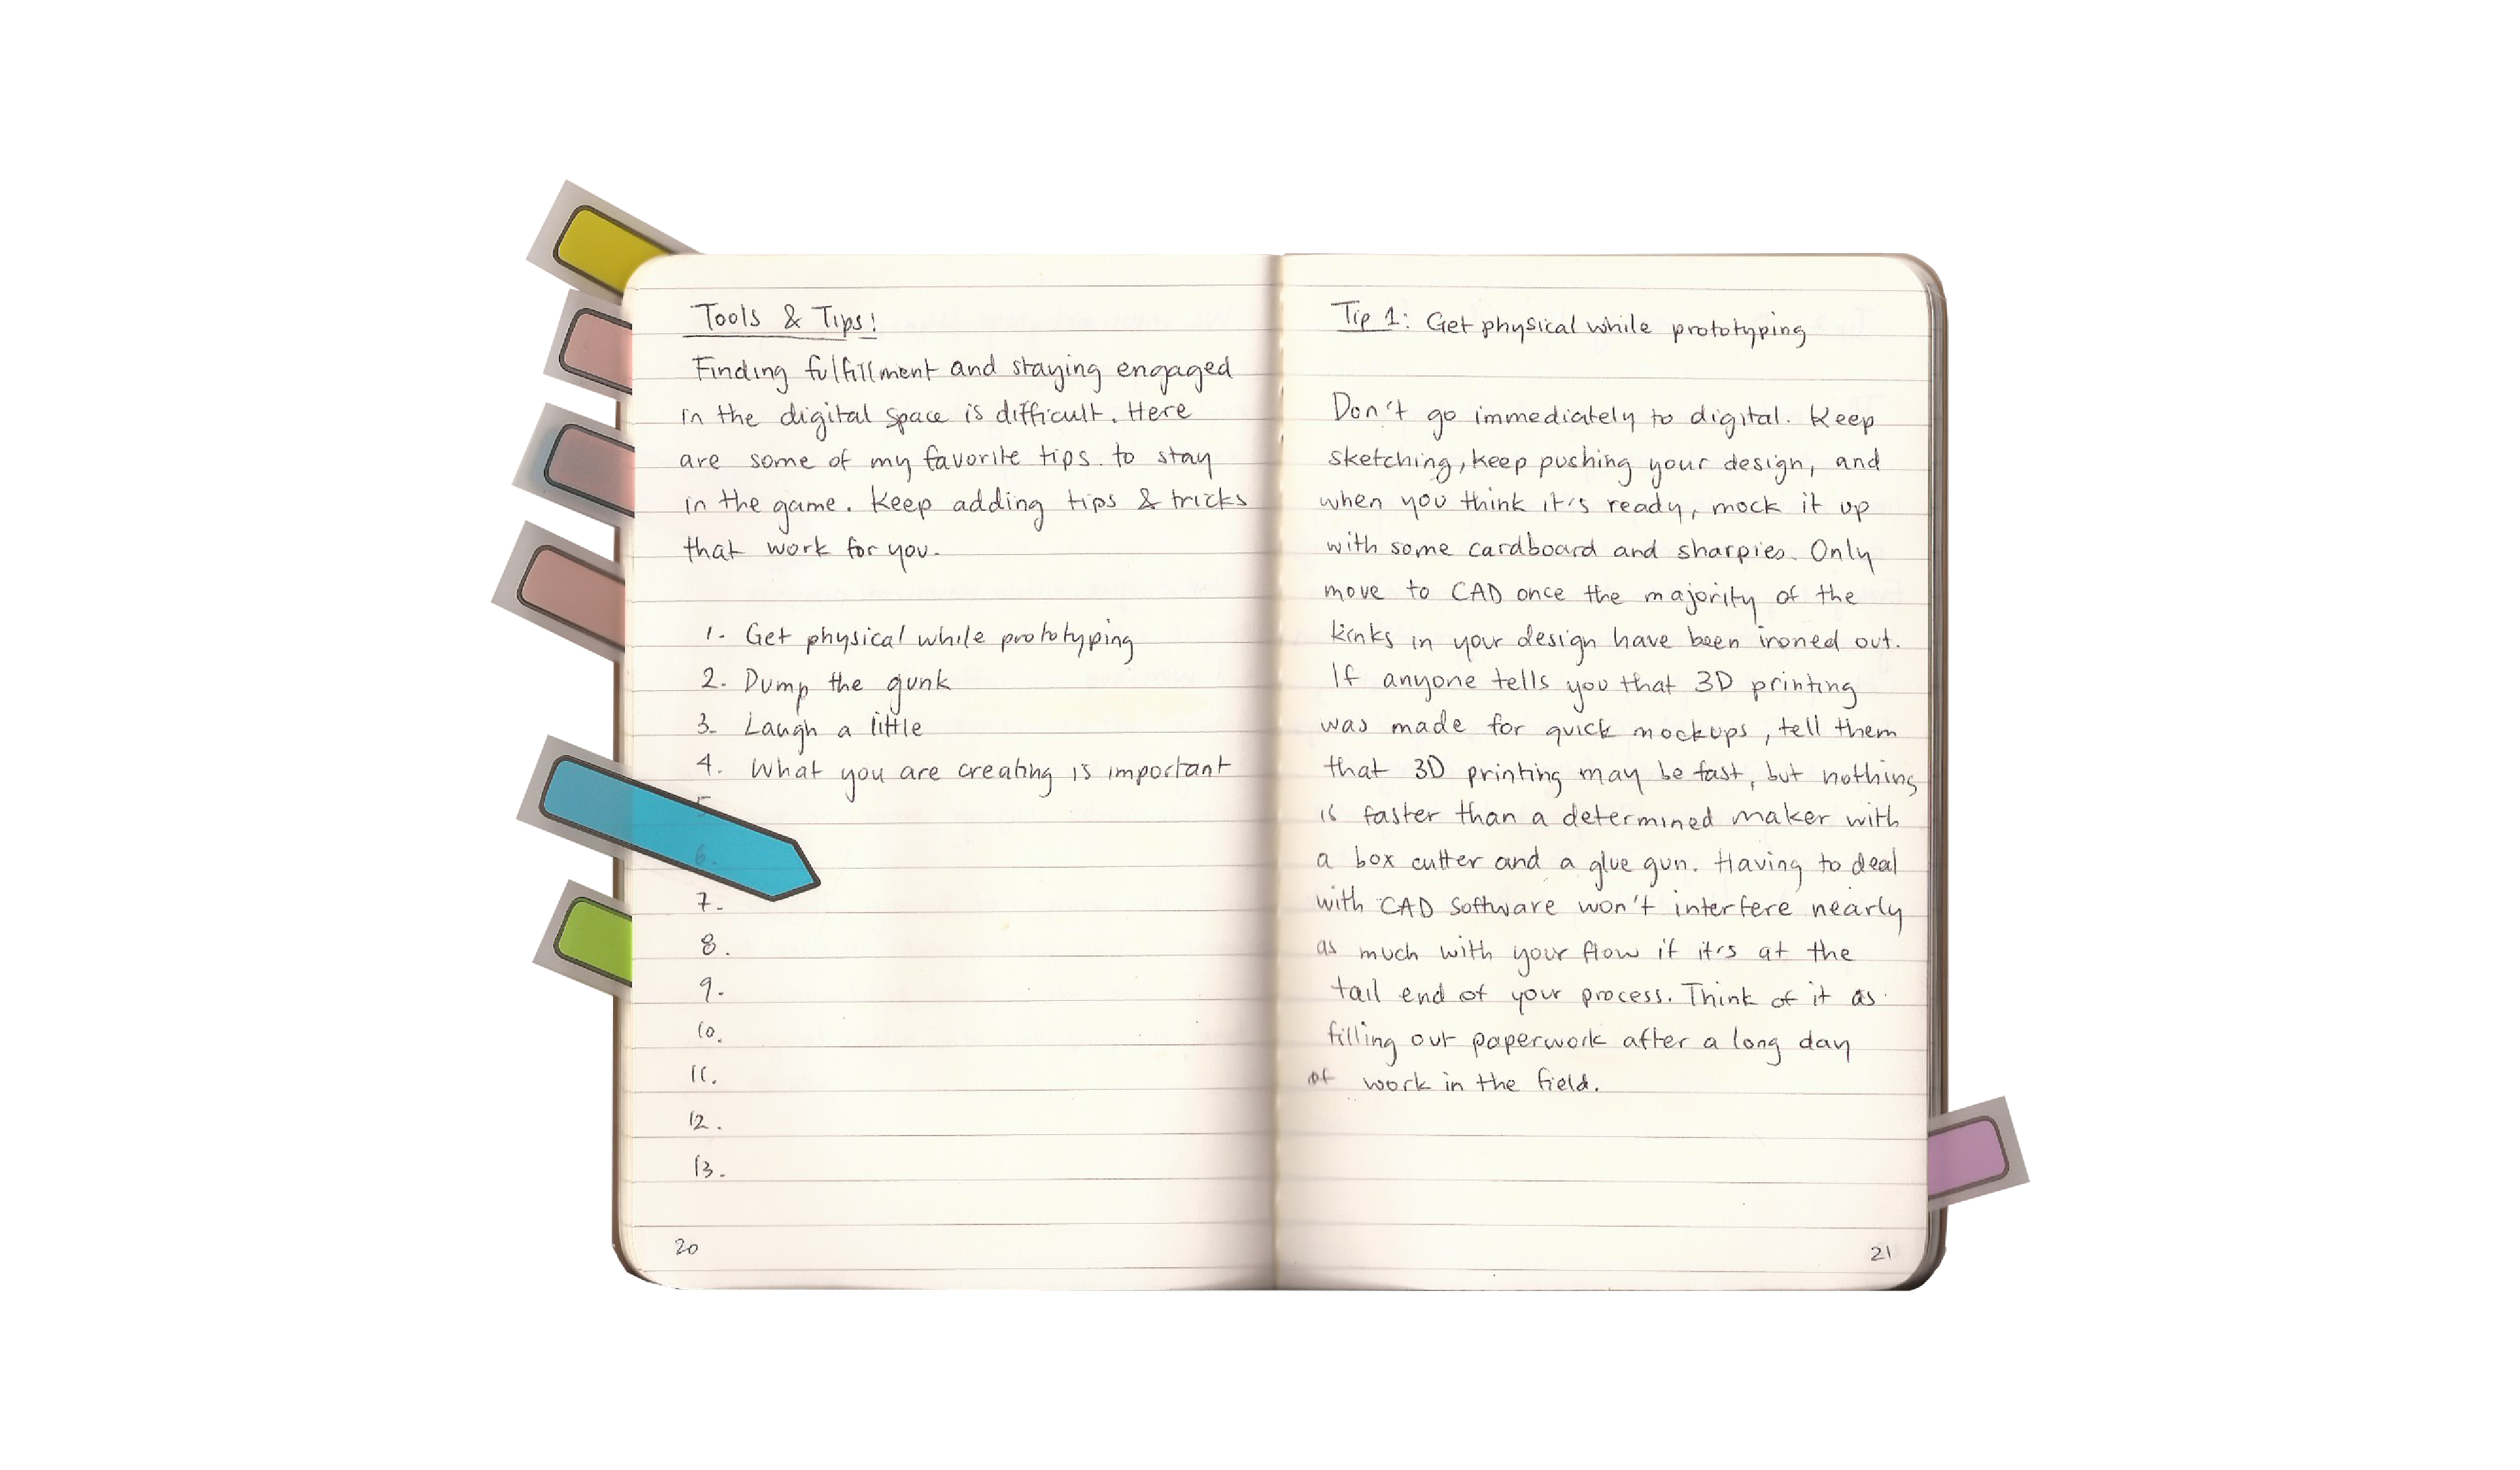 Tools & Tips!
Finding fulfillment and staying engaged
in the digital space is difficult. Here
are some of my favorite tips to stay
in the game. Keep adding tips & tricks
that work for you.
1. Get physical while prototyping
2. Dump the gunk
3. Laugh a little
4. What you are creating is important
5
6.
7.
8.
9.
10.
11.
12.
13.
20
Tip 1: Get physical while prototyping
Don't go immediately to digital. Keep
sketching, keep pushing your design, and
when you think it's ready, mock it up
with some cardboard and sharpies. Only
move to CAD once the majority of the
kinks in your design have been ironed out.
If anyone tells you that 3D printing
was made for quick mockups, tell them
that 3D printing may be fast, but nothing
is faster than a determined maker with
a box cutter and a glue gun. Having to deal
with CAD software won't interfere nearly
as much with your flow if it's at the
tail end of your process. Think of it as
filling out paperwork after a long day
of work in the field.
21